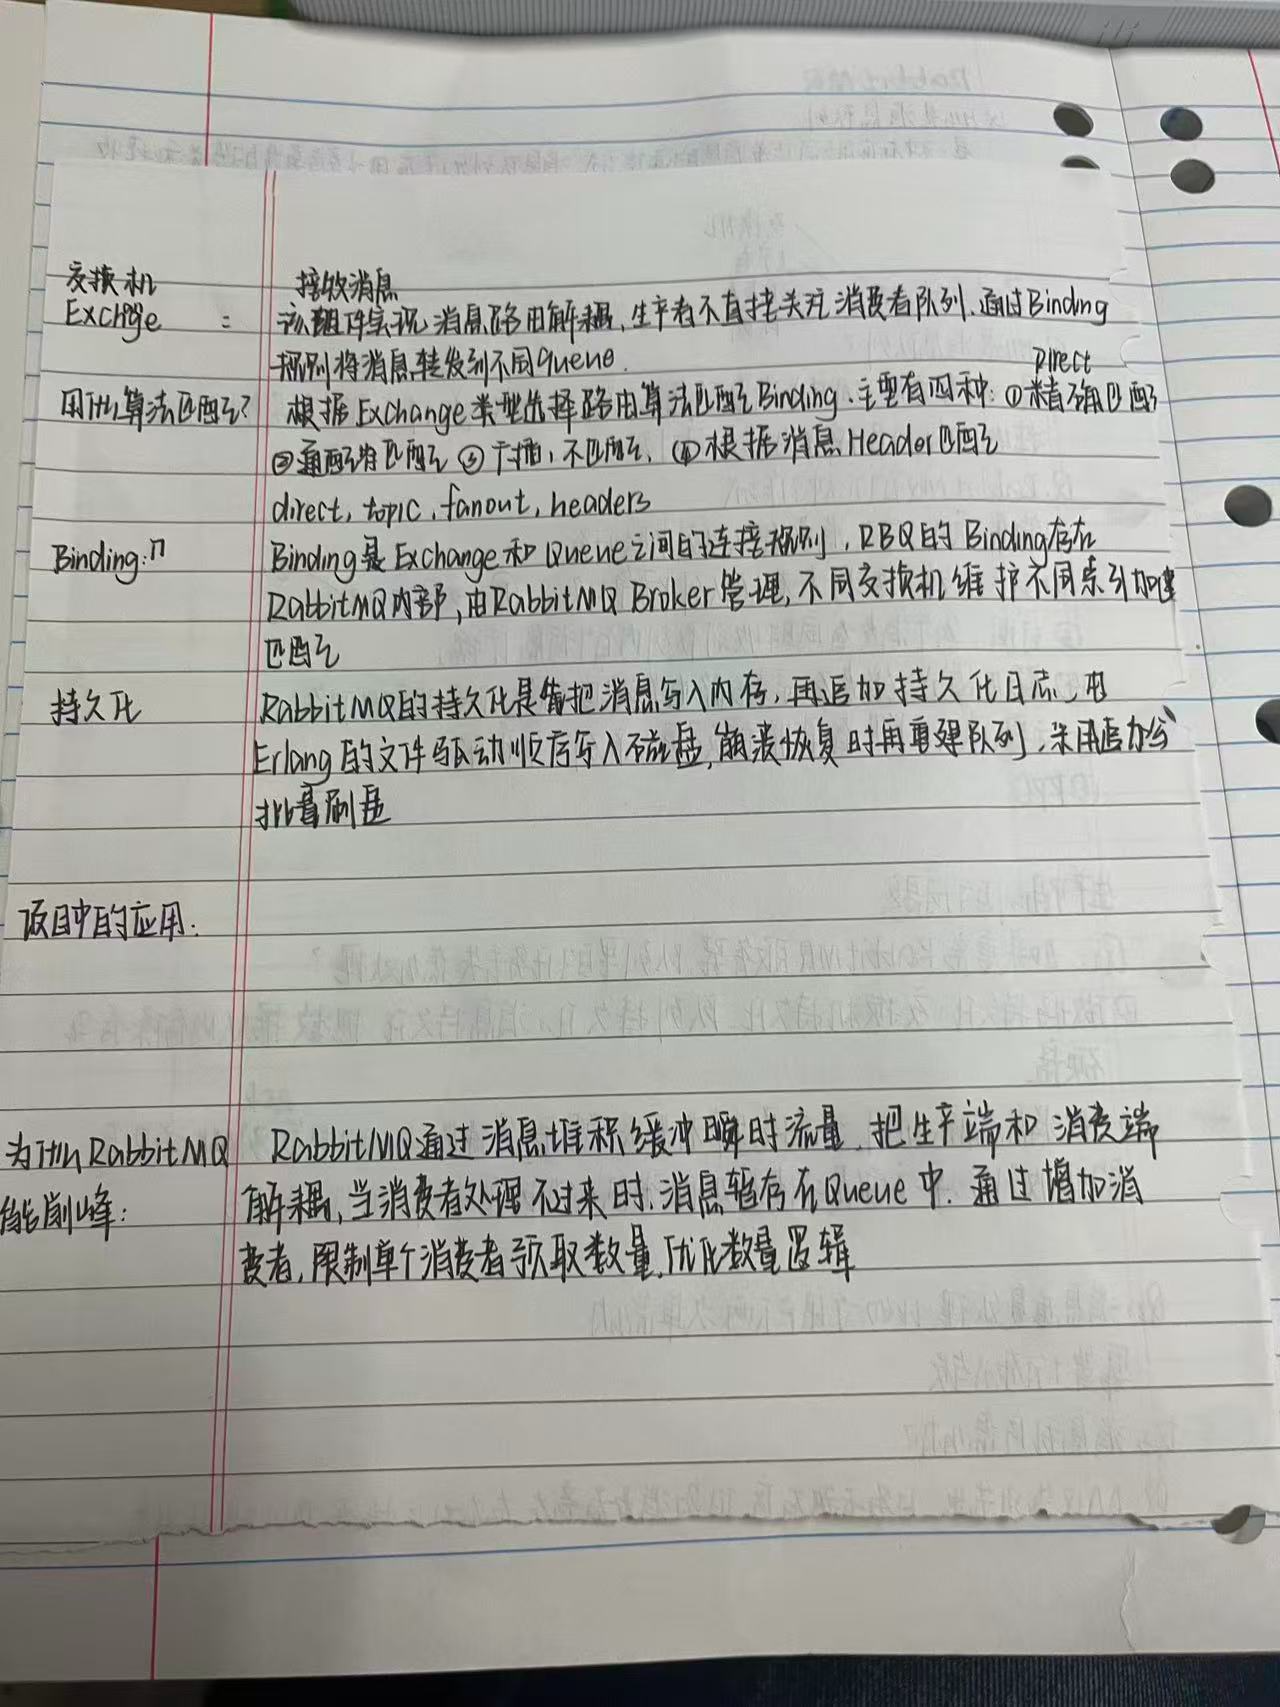 交换机 接收消息
Exchage : 该组件实现消息路由解耦,生产者不直接关注消费者队列.通过Binding
规则将消息转发到不同queue.
Direct
用什么算法匹配? 根据Exchange类型选择路由算法匹配Binding.主要有四种:①精确匹配
②通配符匹配 ③广播,不匹配, ④根据消息Header匹配
direct, topic, fanout, headers
Binding: Binding是Exchange和Queue之间的连接规则,RBQ的Binding存在
RabbitMQ内部,由RabbitMQ Broker管理,不同交换机维护不同索引加速
匹配
持久化 RabbitMQ的持久化是先把消息写入内存,再追加持久化日志,由
Erlang的文件驱动顺序写入磁盘,崩溃恢复时再重建队列,采用追加
批量刷盘
项目中的应用:
为什么RabbitMQ RabbitMQ通过消息堆积缓冲瞬时流量,把生产端和消费端
能削峰: 解耦,当消费者处理不过来时.消息暂存在Queue中.通过增加消
费者,限制单个消费者预取数量,优化数量逻辑